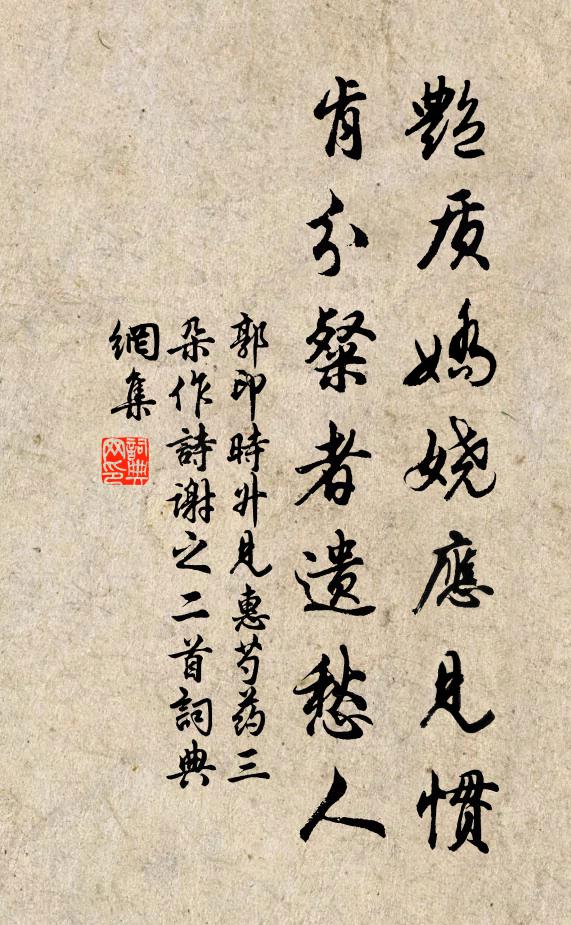 艷质嬌嬈應見慣
肯分粲者遺愁人
郭印時升見惠芍药三
朵作詩谢之二首詞典
網集
詞典
网印